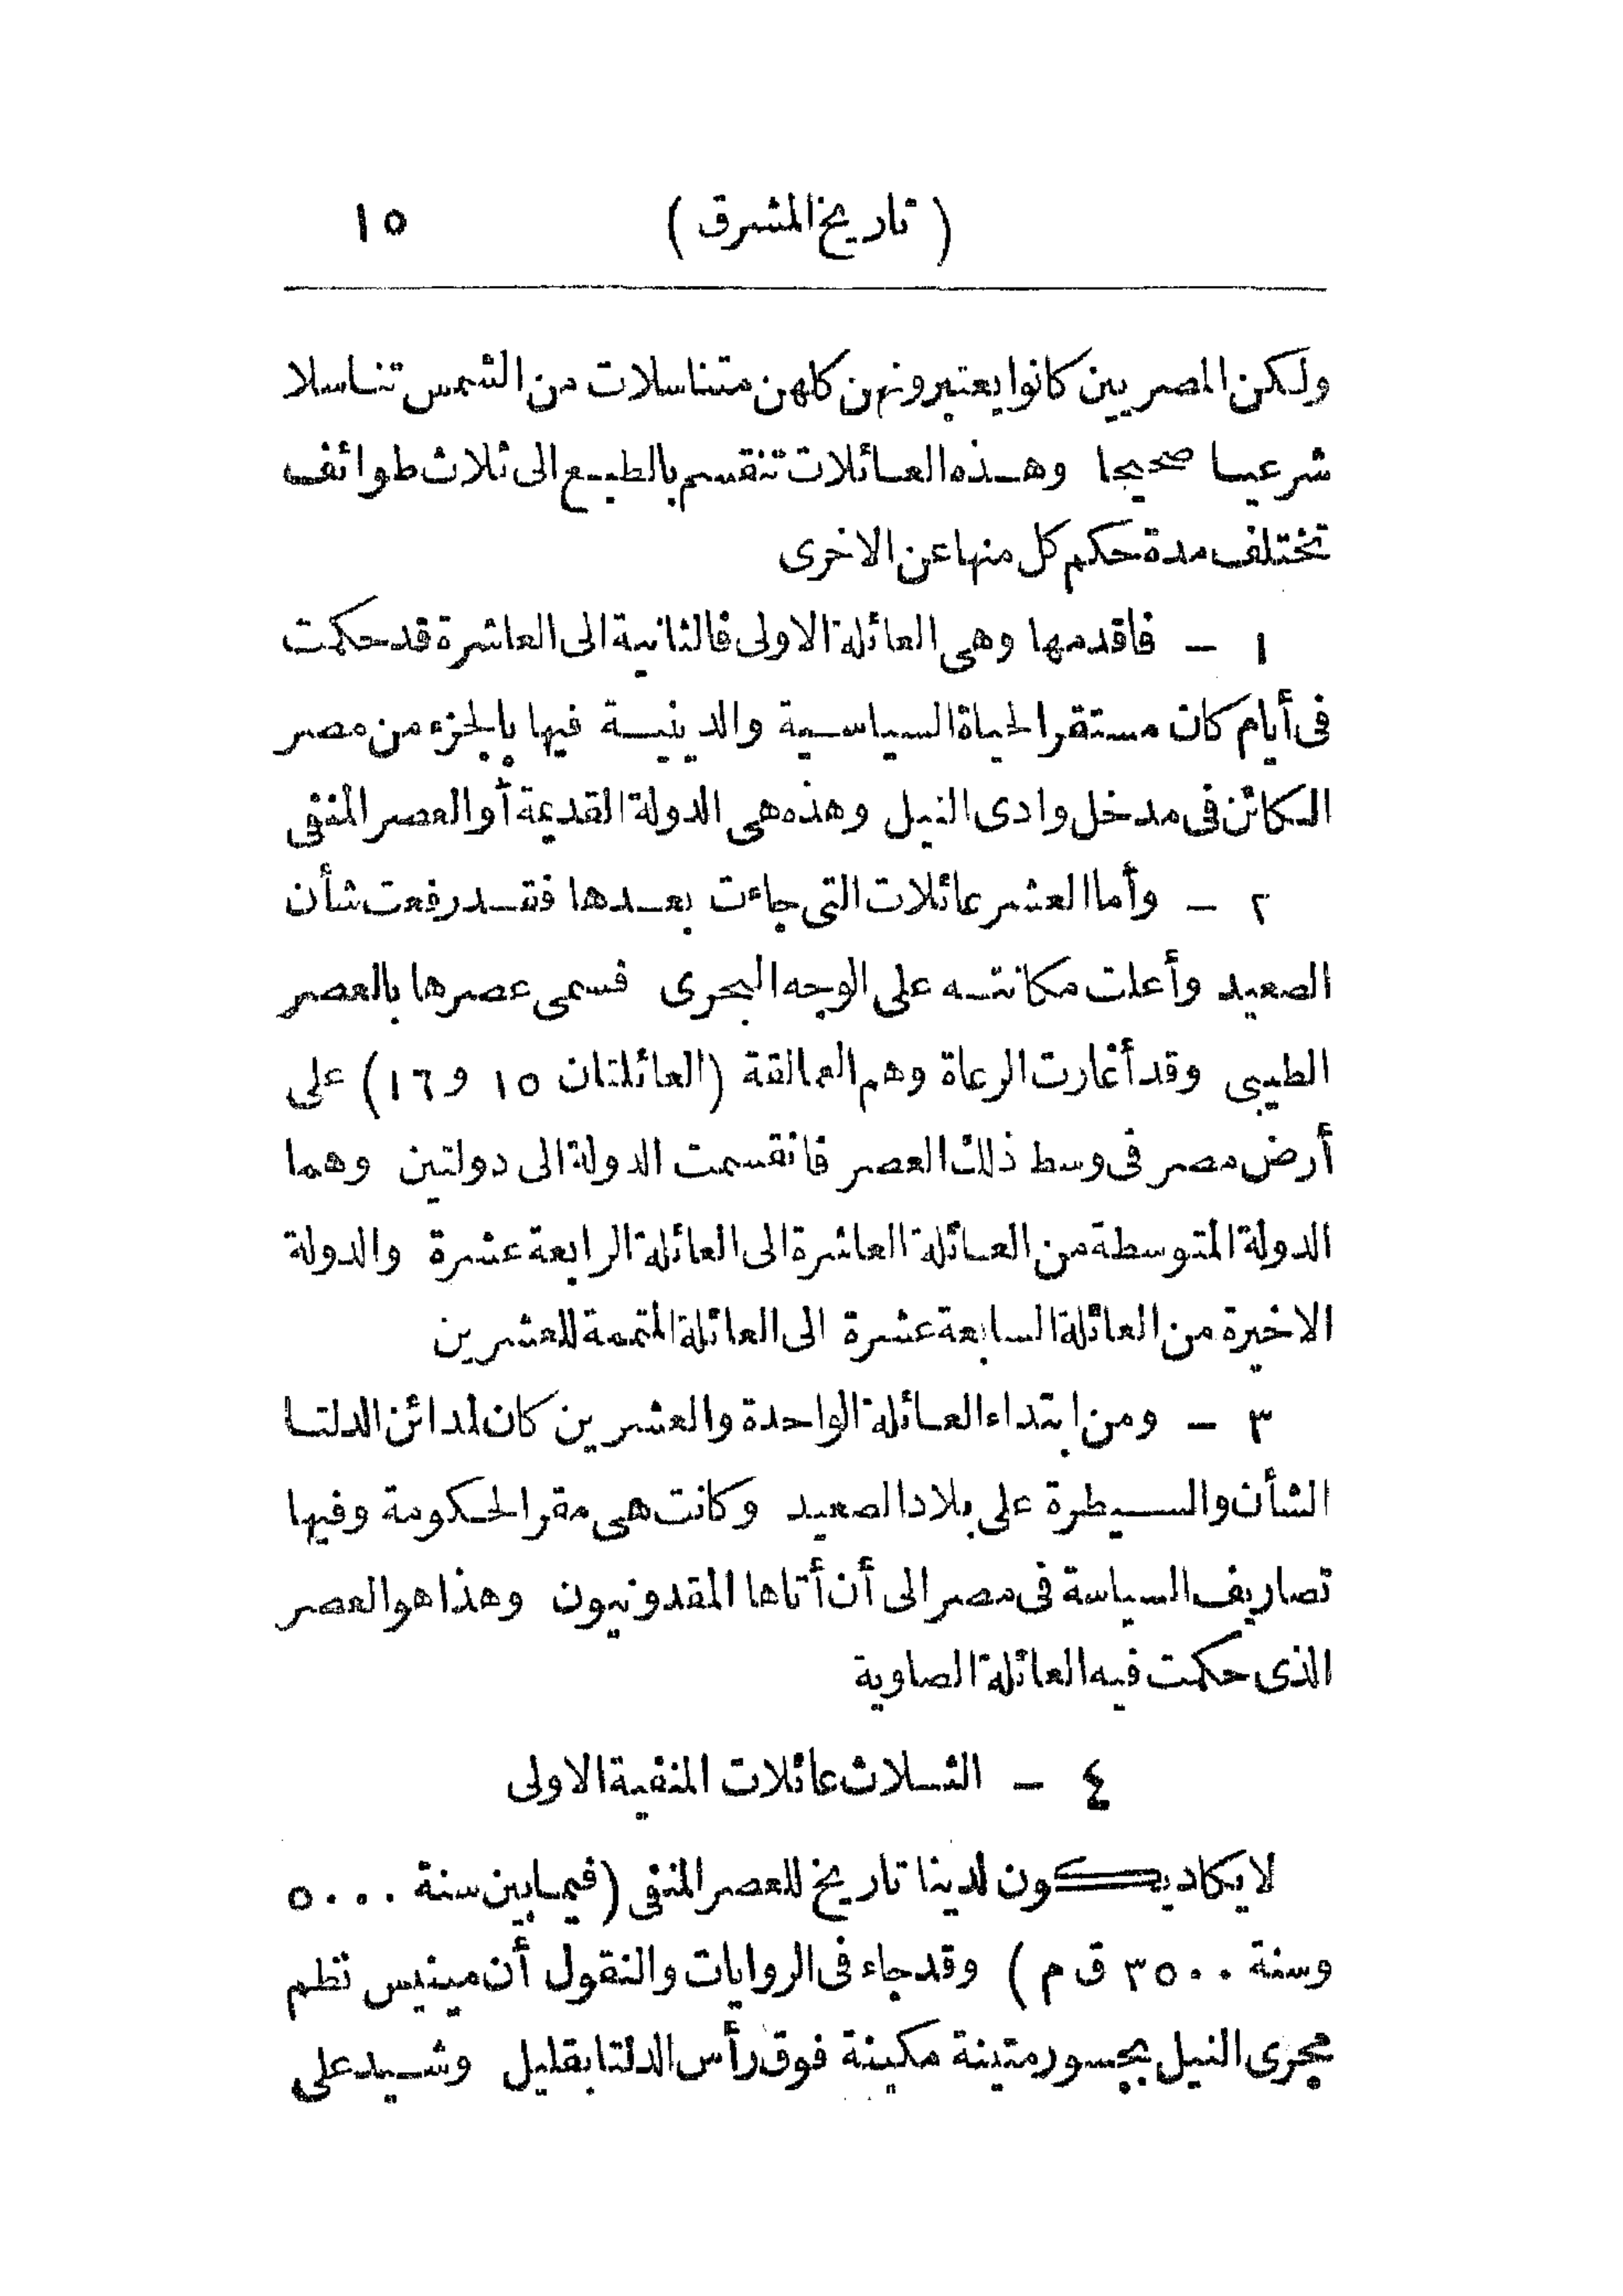 ( تاريخ المشرق ) ١٥
ولكن المصريين كانوا يعتبرونهن كلهن متناسلات من الشمس تناسلا
شرعيا صحيحا وهذه العائلات تنقسم بالطبع الى ثلاث طوائف
تختلف مدة حكم كل منها عن الاخرى
١ - فاقدمها وهى العائلة الاولى فالثانية الى العاشرة قد حكمت
فى أيام كان مستقر الحياة السياسية والدينية فيها بالجزء من مصر
الكائن فى مدخل وادى النيل وهذه هى الدولة القديمة أو العصر المنفى
٢ - وأما العشر عائلات التى جاءت بعدها فقد رفعت شأن
الصعيد وأعلت مكانته على الوجه البحرى فسمى عصرها بالعصر
الطيبى وقد أغارت الرعاة وهم العمالقة (العائلتان ١٥ و ١٦) على
أرض مصر فى وسط ذلك العصر فانقسمت الدولة الى دولتين وهما
الدولة المتوسطة من العائلة العاشرة الى العائلة الرابعة عشرة والدولة
الاخيرة من العائلة السابعة عشرة الى العائلة المتممة للعشرين
٣ - ومن ابتداء العائلة الواحدة والعشرين كان لمدائن الدلتا
الشأن والسيطرة على بلاد الصعيد وكانت هى مقر الحكومة وفيها
تصاريف السياسة فى مصر الى أن أتاها المقدونيون وهذا هو العصر
الذى حكمت فيه العائلة الصاوية
٤ - الثلاث عائلات المنفية الاولى
لا يكاد يكون لدينا تاريخ للعصر المنفى (فيما بين سنة ٥٠٠٠
وسنة ٣٥٠٠ ق م ) وقد جاء فى الروايات والنقول أن مينيس نظم
مجرى النيل بجسور متينة مكينة فوق رأس الدلتا بقليل وشيد على